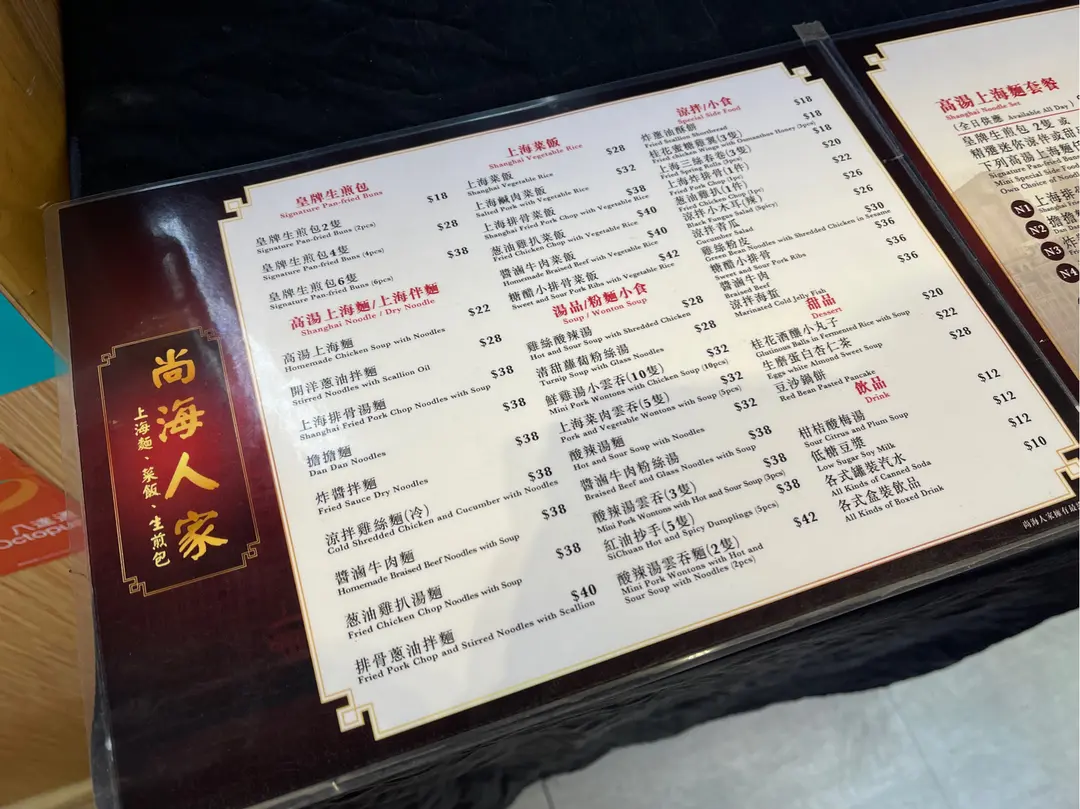 尚海人家
上海麵、菜飯、生煎包
皇牌生煎包
Signature Pan-fried Buns
皇牌生煎包2隻 $18
Signature Pan-fried Buns (2pcs)
皇牌生煎包4隻 $28
Signature Pan-fried Buns (4pcs)
皇牌生煎包6隻 $38
Signature Pan-fried Buns (6pcs)
高湯上海麵/上海伴麵
Shanghai Noodle / Dry Noodle
高湯上海麵 $22
Homemade Chicken Soup with Noodles
開洋蔥油拌麵 $28
Stirred Noodles with Scallion Oil
上海排骨湯麵 $38
Shanghai Fried Pork Chop Noodles with Soup
擔擔麵 $38
Dan Dan Noodles
炸醬拌麵 $38
Fried Sauce Dry Noodles
涼拌雞絲麵(冷) $38
Cold Shredded Chicken and Cucumber with Noodles
醬滷牛肉麵 $38
Homemade Braised Beef Noodles with Soup
葱油雞扒湯麵 $38
Fried Chicken Chop Noodles with Soup
排骨蔥油拌麵 $40
Fried Pork Chop and Stirred Noodles with Scallion
上海菜飯
Shanghai Vegetable Rice
上海菜飯 $28
Shanghai Vegetable Rice
上海鹹肉菜飯 $32
Salted Pork with Vegetable Rice
上海排骨菜飯 $38
Shanghai Fried Pork Chop with Vegetable Rice
葱油雞扒菜飯 $40
Fried Chicken Chop with Vegetable Rice
醬滷牛肉菜飯 $40
Homemade Braised Beef with Vegetable Rice
糖醋小排骨菜飯 $42
Sweet and Sour Pork Ribs with Vegetable Rice
湯品/粉麵小食
Soup / Wonton Soup
雞絲酸辣湯 $28
Hot and Sour Soup with Shredded Chicken
清甜蘿蔔粉絲湯 $28
Turnip Soup with Glass Noodles
鮮雞湯小雲吞(10隻) $32
Mini Pork Wontons with Chicken Soup (10pcs)
上海菜肉雲吞(5隻) $32
Pork and Vegetable Wontons with Soup (5pcs)
酸辣湯麵 $32
Hot and Sour Soup with Noodles
醬滷牛肉粉絲湯 $38
Braised Beef and Glass Noodles with Soup
酸辣湯雲吞(3隻) $38
Mini Pork Wontons with Hot and Sour Soup (3pcs)
紅油抄手(5隻) $38
SiChuan Hot and Spicy Dumplings (5pcs)
酸辣湯雲吞麵(2隻) $42
Mini Pork Wontons with Hot and
Sour Soup with Noodles (2pcs)
涼拌/小食
Special Side Food
炸蔥油酥餅 $18
Fried Scallion Shortbread
桂花蜜糖雞翼(3隻) $18
Fried chicken Wings with Osmanthus Honey (3pcs)
上海三絲春卷(3隻) $18
Fried Spring Rolls (3pcs)
上海炸排骨(1件) $20
Fried Pork Chop (1pc)
葱油雞扒(1件) $22
Fried Chicken Chop (1pc)
涼拌小木耳(辣) $26
Black Fungus Salad (Spicy)
涼拌青瓜 $26
Cucumber Salad
雞絲粉皮 $30
Green Bean Noodles with Shredded Chicken in Sesame
糖醋小排骨 $36
Sweet and Sour Pork Ribs
醬滷牛肉 $36
Braised Beef
涼拌海蜇 $36
Marinated Cold Jelly Fish
甜品
Dessert
桂花酒釀小丸子 $20
Glutinous Balls in Fermented Rice with Soup
生磨蛋白杏仁茶 $22
Eggs white Almond Sweet Soup
豆沙鍋餅 $28
Red Bean Pasted Pancake
飲品
Drink
柑桔酸梅湯 $12
Sour Citrus and Plum Soup
低糖豆漿 $12
Low Sugar Soy Milk
各式罐裝汽水 $12
All Kinds of Canned Soda
各式盒裝飲品 $10
All Kinds of Boxed Drink
高湯上海麵套餐
Shanghai Noodle Set
(全日供應 Available All Day)
皇牌生煎包 2隻 或
Signature Pan-fried Buns
精選迷你涼伴或甜
Mini Special Side Food
下列高湯上海麵
Own Choice of Nood
N1 上海排
Shanghai Frie
N2 擔擔
Dan Dan
N3 炸
Fri
N4
尚海人家擁有最
八達通
Octopus